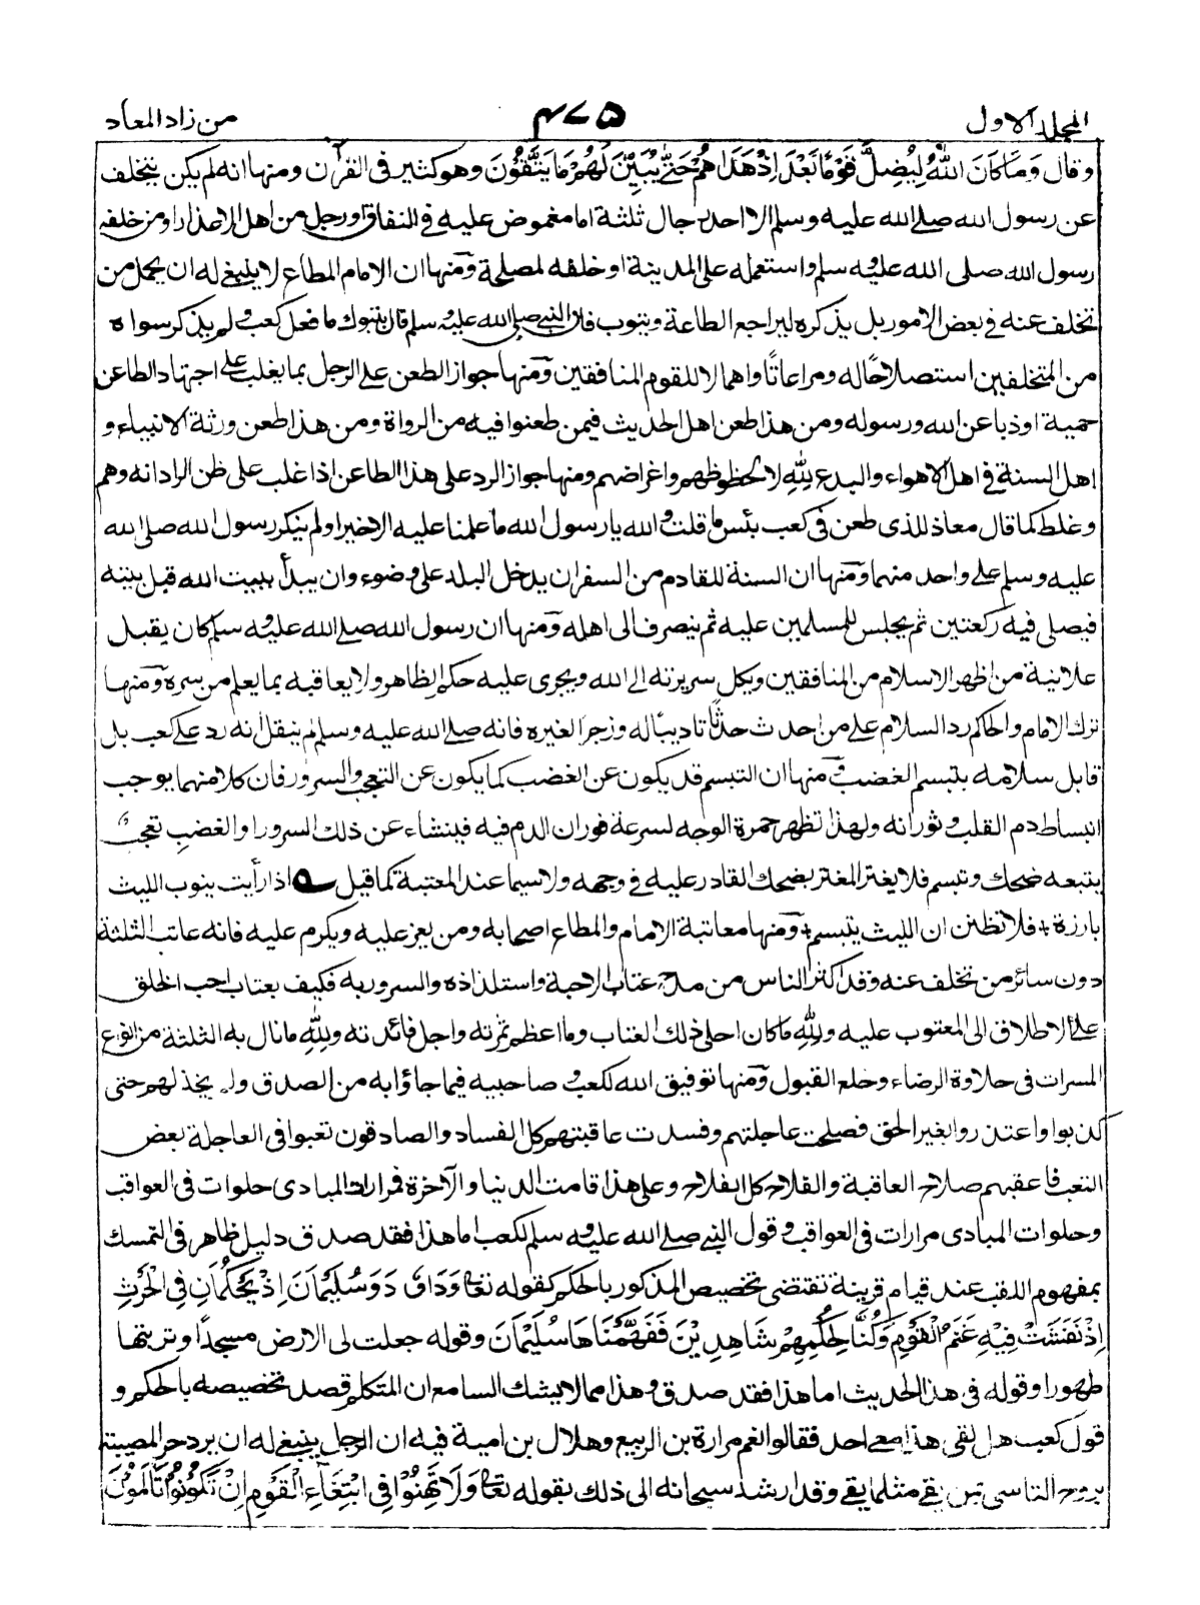 المجلد الاول
۴۷۵
من زاد المعاد
وقال وَمَا كَانَ اللّٰهُ لِيُضِلَّ قَوْمًا بَعْدَ اِذْ هَدَاهُمْ حَتّٰى يُبَيِّنَ لَهُمْ مَا يَتَّقُوْنَ وهو كثير فى القرآن ومنها انه لم يكن يتخلف
عن رسول الله صلے الله عليه وسلم الا احد رجال ثلثة اما مغموض عليه فى النفاق او رجل من اهل الاعذار او من خلفه
رسول الله صلى الله عليه وسلم واستعمله على المدينة او خلفه لمصلحة ومنها ان الامام المطاع لا ينبغے له ان يهمل من
تخلف عنه فى بعض الامور بل يذكره ليراجع الطاعة ويتوب فان النبى صلے الله عليه وسلم قال بتبوك ما فعل كعب ولم يذكر سواه
من المتخلفين استصلاحًا له ومراعاتًا واهمالا للقوم المنافقين ومنها جواز الطعن على الرجل بما يغلب على اجتهاد الطاعن
حمية او ذبا عن الله ورسوله ومن هذا طعن اهل الحديث فيمن طعنوا فيه من الرواة ومن هذا طعن ورثة الانبياء و
اهل السنة فى اهل الاهواء والبدع لِلّٰهِ لا لحظوظهم واغراضهم ومنها جواز الرد على هذا الطاعن اذا غلب على ظن الراد انه وهم
وغلط كما قال معاذ للذى طعن فى كعب بئس ما قلت والله يا رسول الله ما علمنا عليه الا خيرا ولم ينكر رسول الله صلے الله
عليه وسلم على واحد منهما ومنها ان السنة للقادم من السفر ان يدخل البلد على وضوء وان يبدأ ببيت الله قبل بيته
فيصلى فيه ركعتين ثم يجلس للمسلمين عليه ثم ينصرف الى اهله ومنها ان رسول الله صلے الله عليه وسلم كان يقبل
علانية من اظهر الاسلام من المنافقين ويكل سريرته الى الله ويجرى عليه حكم الظاهر ولا يعاقبه بما يعلم من سره ومنها
ترك الامام والحاكم رد السلام على من احدث حدثًا تاديبًا له وزجرا لغيره فانه صلے الله عليه وسلم لم ينقل انه رد على كعب بل
قابل سلامه بتبسم الغضب ومنها ان التبسم قد يكون عن الغضب كما يكون عن التعجب والسرور فان كلا منهما يوجب
انبساط دم القلب وثورانه ولهذا تظهر حمرة الوجه لسرعة فوران الدم فيه فينشاء عن ذلك السرور او الغضبِ تعجبٌ
يتبعه ضحك وتبسم فلا يغتر المغتر بضحك القادر عليه فى وجهه ولا سيما عند المعتبة كما قيل ؎ اذا رأيت نيوب الليث
بارزة + فلا تظنن ان الليث يتبسم + ومنها معاتبة الامام والمطاع اصحابه ومن يعز عليه ويكرم عليه فانه عاتب الثلثة
دون سائر من تخلف عنه وقد اكثر الناس من مدح عتاب الاحبة واستلذاذه والسرور به فكيف بعتاب احب الخلق
على الاطلاق الى المعتوب عليه ولِلّٰهِ ما كان احلى ذلك العتاب وما اعظم ثمرته واجل فائدته ولِلّٰهِ ما نال به الثلثة من انواع
المسرات فى حلاوة الرضاء وخلع القبول ومنها توفيق الله لكعب وصاحبيه فيما جاؤا به من الصدق ولم يخذلهم حتى
كذبوا واعتذروا بغير الحق فصلحت عاجلتهم وفسدت عاقبتهم كل الفساد والصادقون تعبوا فى العاجلة بعض
التعب فاعقبهم صلاح العاقبة والفلاح كل الفلاح وعلى هذا قامت الدنيا والآخرة فمرارات المبادى حلوات فى العواقب
وحلوات المبادى مرارات فى العواقب وقول النبى صلے الله عليه وسلم لكعب اما هذا فقد صدق دليل ظاهر فى التمسك
بمفهوم اللقب عند قيام قرينة تقتضى تخصيص المذكور بالحكم كقوله تعالى وَدَاوٗدَ وَسُلَيْمَانَ اِذْ يَحْكُمَانِ فِى الْحَرْثِ
اِذْ نَفَشَتْ فِيْهِ غَنَمُ الْقَوْمِ وَكُنَّا لِحُكْمِهِمْ شَاهِدِيْنَ فَفَهَّمْنَاهَا سُلَيْمَانَ وقوله جعلت لى الارض مسجدًا وتربتها
طهورا وقوله فى هذا الحديث اما هذا فقد صدق وهذا مما لا يشك السامع ان المتكلم قصد تخصيصه بالحكم و
قول كعب هل لقى هذا معى احد فقالوا نعم مرارة بن الربيع وهلال بن امية فيه ان الرجل ينبغى له ان يرد حر المصيبة
بروح التاسى بمن لقى مثل ما لقى وقد ارشد سبحانه الى ذلك بقوله تعالى وَلَا تَهِنُوْا فِى ابْتِغَآءِ الْقَوْمِ اِنْ تَكُوْنُوْا تَالَمُوْنَ